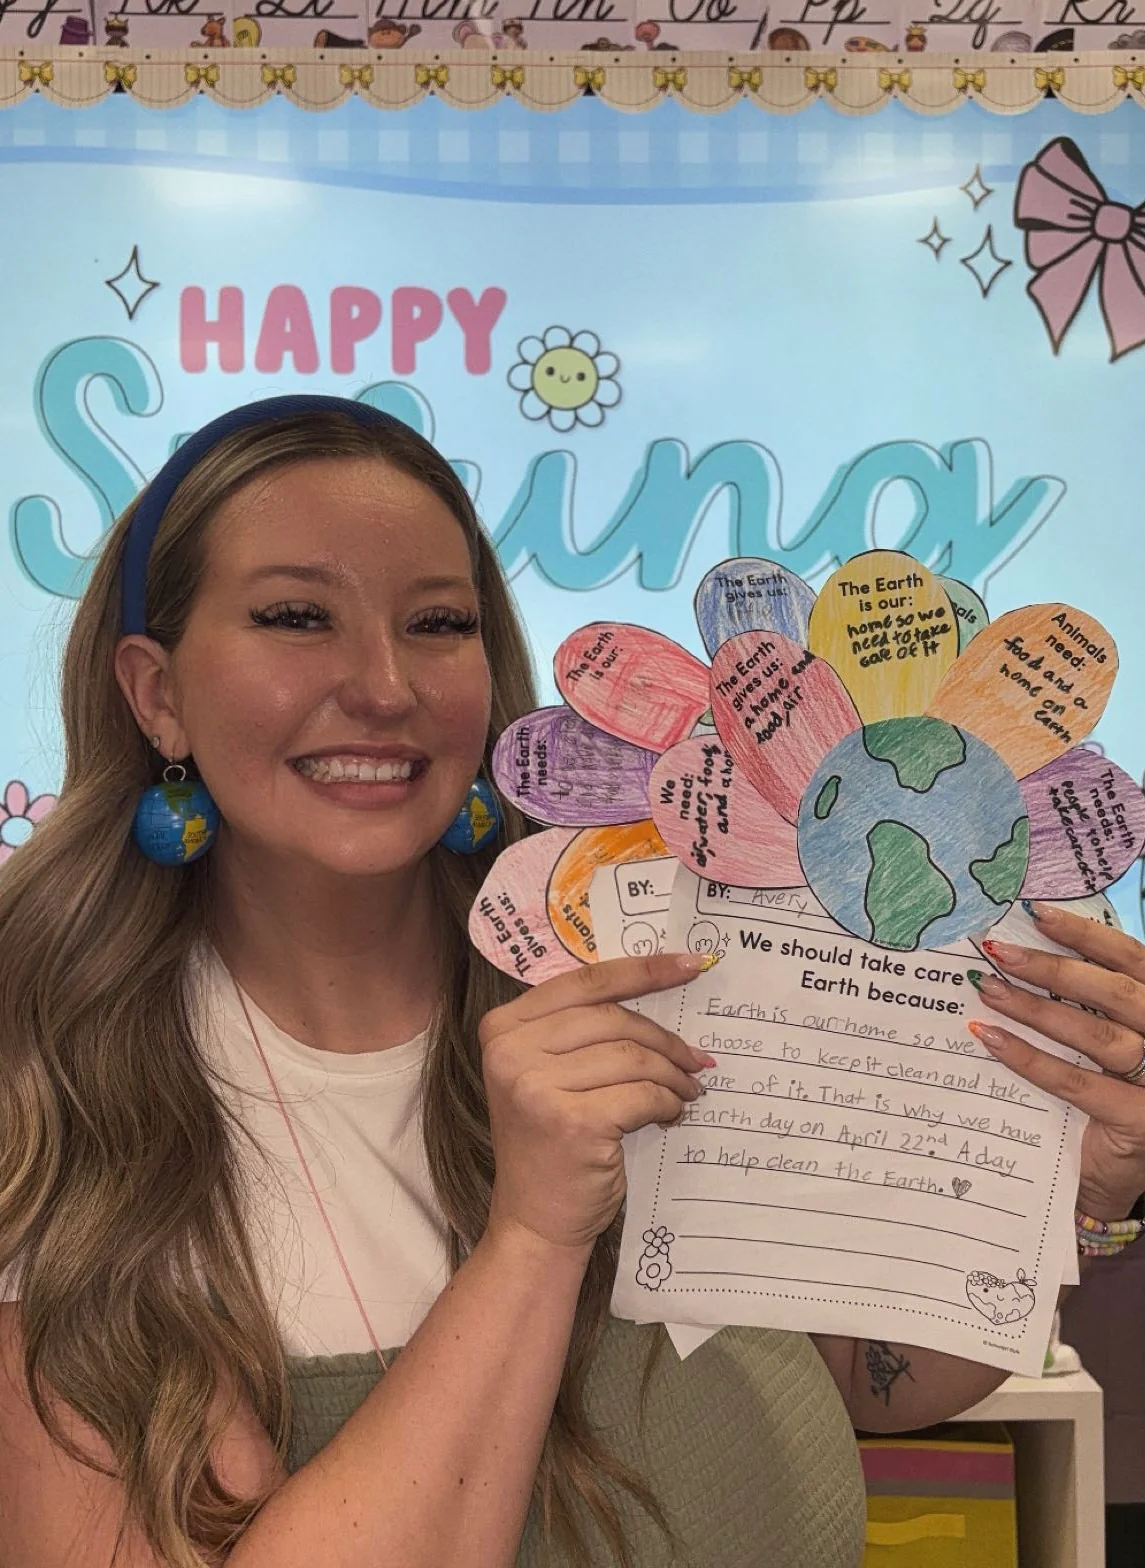 HAPPY
Spring
The Earth
gives us:
The Earth
is our:
home so we
need to take
care of it
Animals
need:
food and a
home on
Earth
The Earth
is our:
The Earth
gives us:
a home and
food, air
The Earth
needs:
We
need:
air, water, food,
and a home
The Earth
needs:
people to help
The Earth
gives us:
plants
BY:
BY: Avery
We should take care
Earth because:
Earth is our home so we
choose to keep it clean and take
care of it. That is why we have
Earth day on April 22nd. A day
to help clean the Earth.